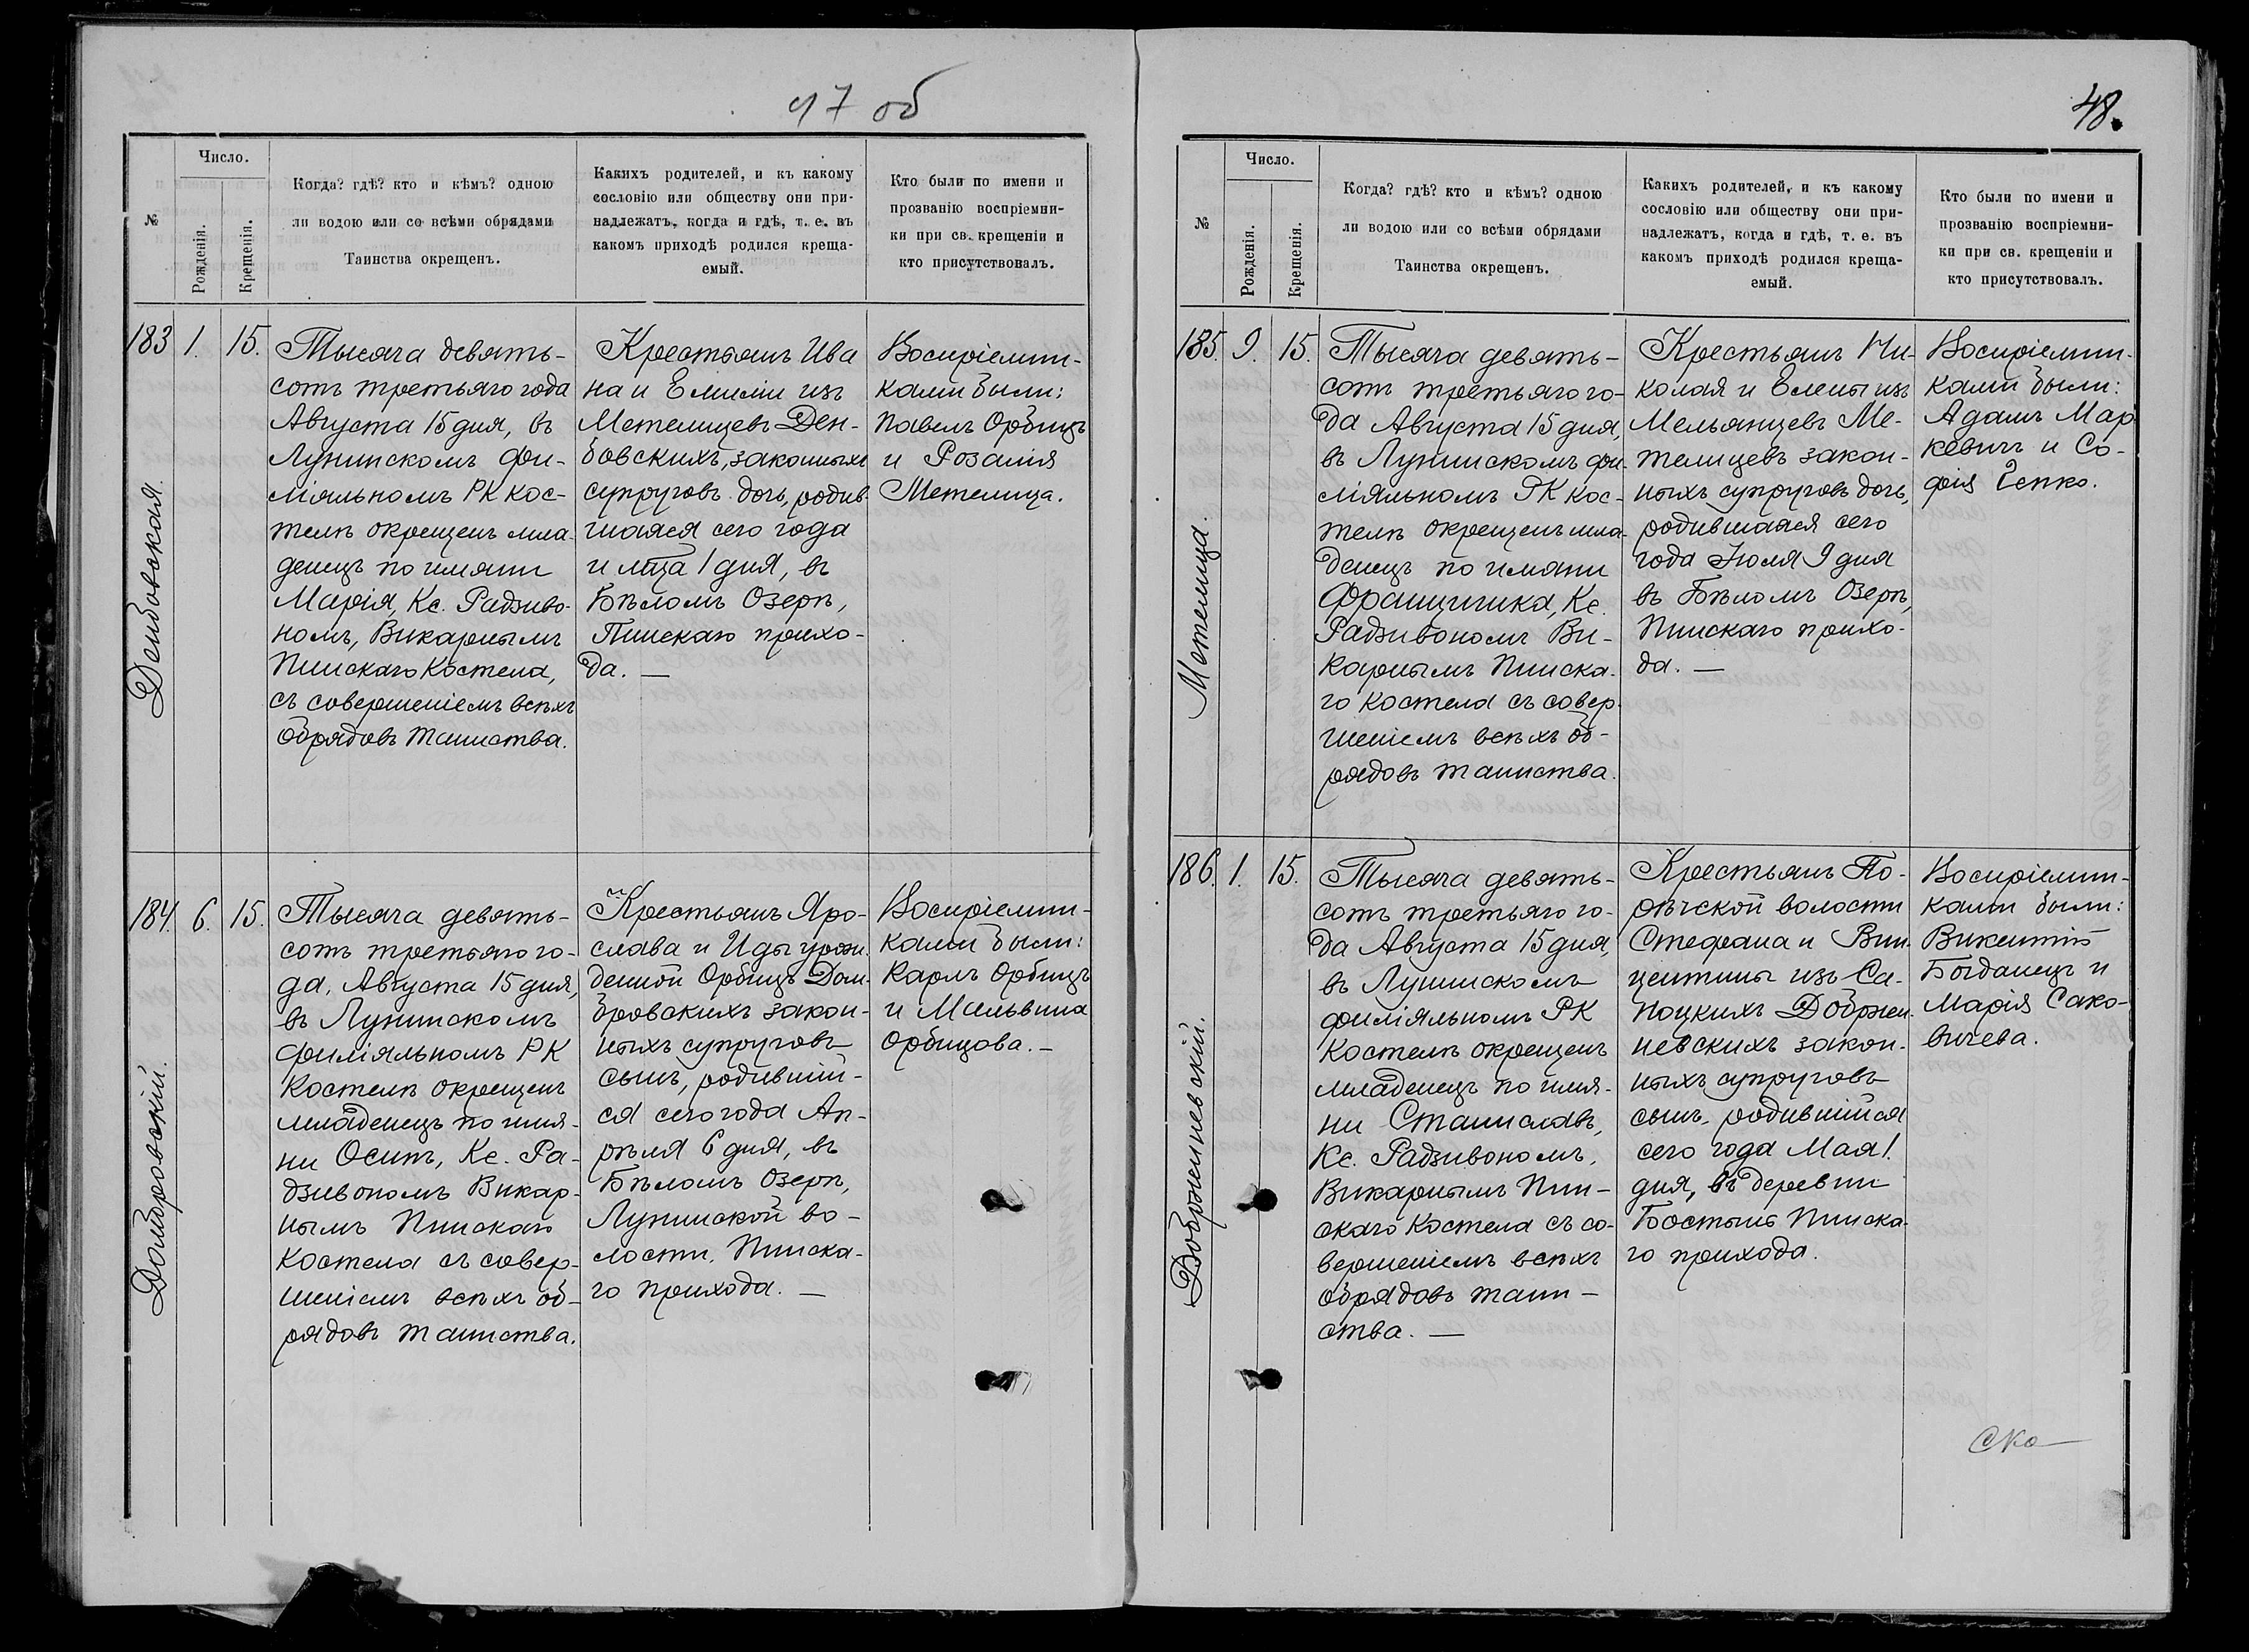 47 об
№
Число.
Рожденія.
Крещенія.
Когда? гдѣ? кто и кѣмъ? одною
ли водою или со всѣми обрядами
Таинства окрещенъ.
Какихъ родителей, и къ какому
сословію или обществу они при-
надлежатъ, когда и гдѣ, т. е. въ
какомъ приходѣ родился креща-
емый.
Кто были по имени и
прозванію воспріемни-
ки при св. крещеніи и
кто присутствовалъ.
Дембовская.
183
1.
15.
Тысяча девять-
сотъ третьяго года
Августа 15 дня, въ
Лунинскомъ фи-
ліяльномъ РК кос-
телѣ окрещенъ мла-
денецъ по имяни
Марія, Кс. Радзиво-
номъ, Викарнымъ
Пинскаго Костела,
съ совершеніемъ всѣхъ
обрядовъ таинства.
Крестьянъ Ива
на и Емиліи изъ
Метелицевъ Ден-
бовскихъ, законныхъ
супруговъ дочь, родив-
шаяся сего года
и м-ца 1 дня, въ
Бѣломъ Озерѣ,
Пинскаго прихо-
да. —
Воспріемни-
ками были:
Павелъ Орбицъ
и Розалія
Метелица.
Домбровскій.
184.
6.
15.
Тысяча девять-
сотъ третьяго го-
да, Августа 15 дня,
въ Лунинскомъ
филіяльномъ РК
Костелѣ окрещенъ
младенецъ по имя-
ни Осипъ, Кс. Ра-
дзивономъ Викар-
нымъ Пинскаго
Костела съ совер-
шеніемъ всѣхъ об-
рядовъ таинства.
Крестьянъ Яро-
слава и Иды урож-
денной Орбицъ Дом-
бровскихъ закон-
ныхъ супруговъ
сынъ, родившій-
ся сего года Ап-
рѣля 6 дня, въ
Бѣломъ Озерѣ,
Лунинской во-
лости, Пинска-
го прихода. —
Воспріемни-
ками были:
Карлъ Орбицъ
и Мальвина
Орбицова. —
48.
№
Число.
Рожденія.
Крещенія.
Когда? гдѣ? кто и кѣмъ? одною
ли водою или со всѣми обрядами
Таинства окрещенъ.
Какихъ родителей, и къ какому
сословію или обществу они при-
надлежатъ, когда и гдѣ, т. е. въ
какомъ приходѣ родился креща-
емый.
Кто были по имени и
прозванію воспріемни-
ки при св. крещеніи и
кто присутствовалъ.
Метелица.
185.
9.
15.
Тысяча девять-
сотъ третьяго го-
да Августа 15 дня,
въ Лунинскомъ фи-
ліяльномъ РК кос-
телѣ окрещенъ мла-
денецъ по имяни
Францишка, Кс.
Радзивономъ Ви-
карнымъ Пинска-
го Костела съ совер-
шеніемъ всѣхъ об-
рядовъ таинства.
Крестьянъ Ни-
колая и Елены изъ
Мельянцевъ Ме-
телицевъ закон-
ныхъ супруговъ дочь,
родившаяся сего
года Іюля 9 дня
въ Бѣломъ Озерѣ,
Пинскаго прихо-
да. —
Воспріемни-
ками были:
Адамъ Мар-
кевичъ и Со-
фія Чепко.
Добржиневскій.
186.
1.
15.
Тысяча девять-
сотъ третьяго го-
да Августа 15 дня,
въ Лунинскомъ
филіяльномъ РК
Костелѣ окрещенъ
младенецъ по имя-
ни Станиславъ,
Кс. Радзивономъ,
Викарнымъ Пин-
скаго Костела съ со-
вершеніемъ всѣхъ
обрядовъ таин-
ства. —
Крестьянъ По-
рѣчской волости
Стефана и Вин-
центины изъ Са-
поцкихъ Добржи-
невскихъ закон-
ныхъ супруговъ
сынъ, родившійся
сего года Мая 1.
дня, въ деревни
Бостынь Пинска-
го прихода.
Воспріемни-
ками были:
Викентій
Богданецъ и
Марія Сако-
вичева.